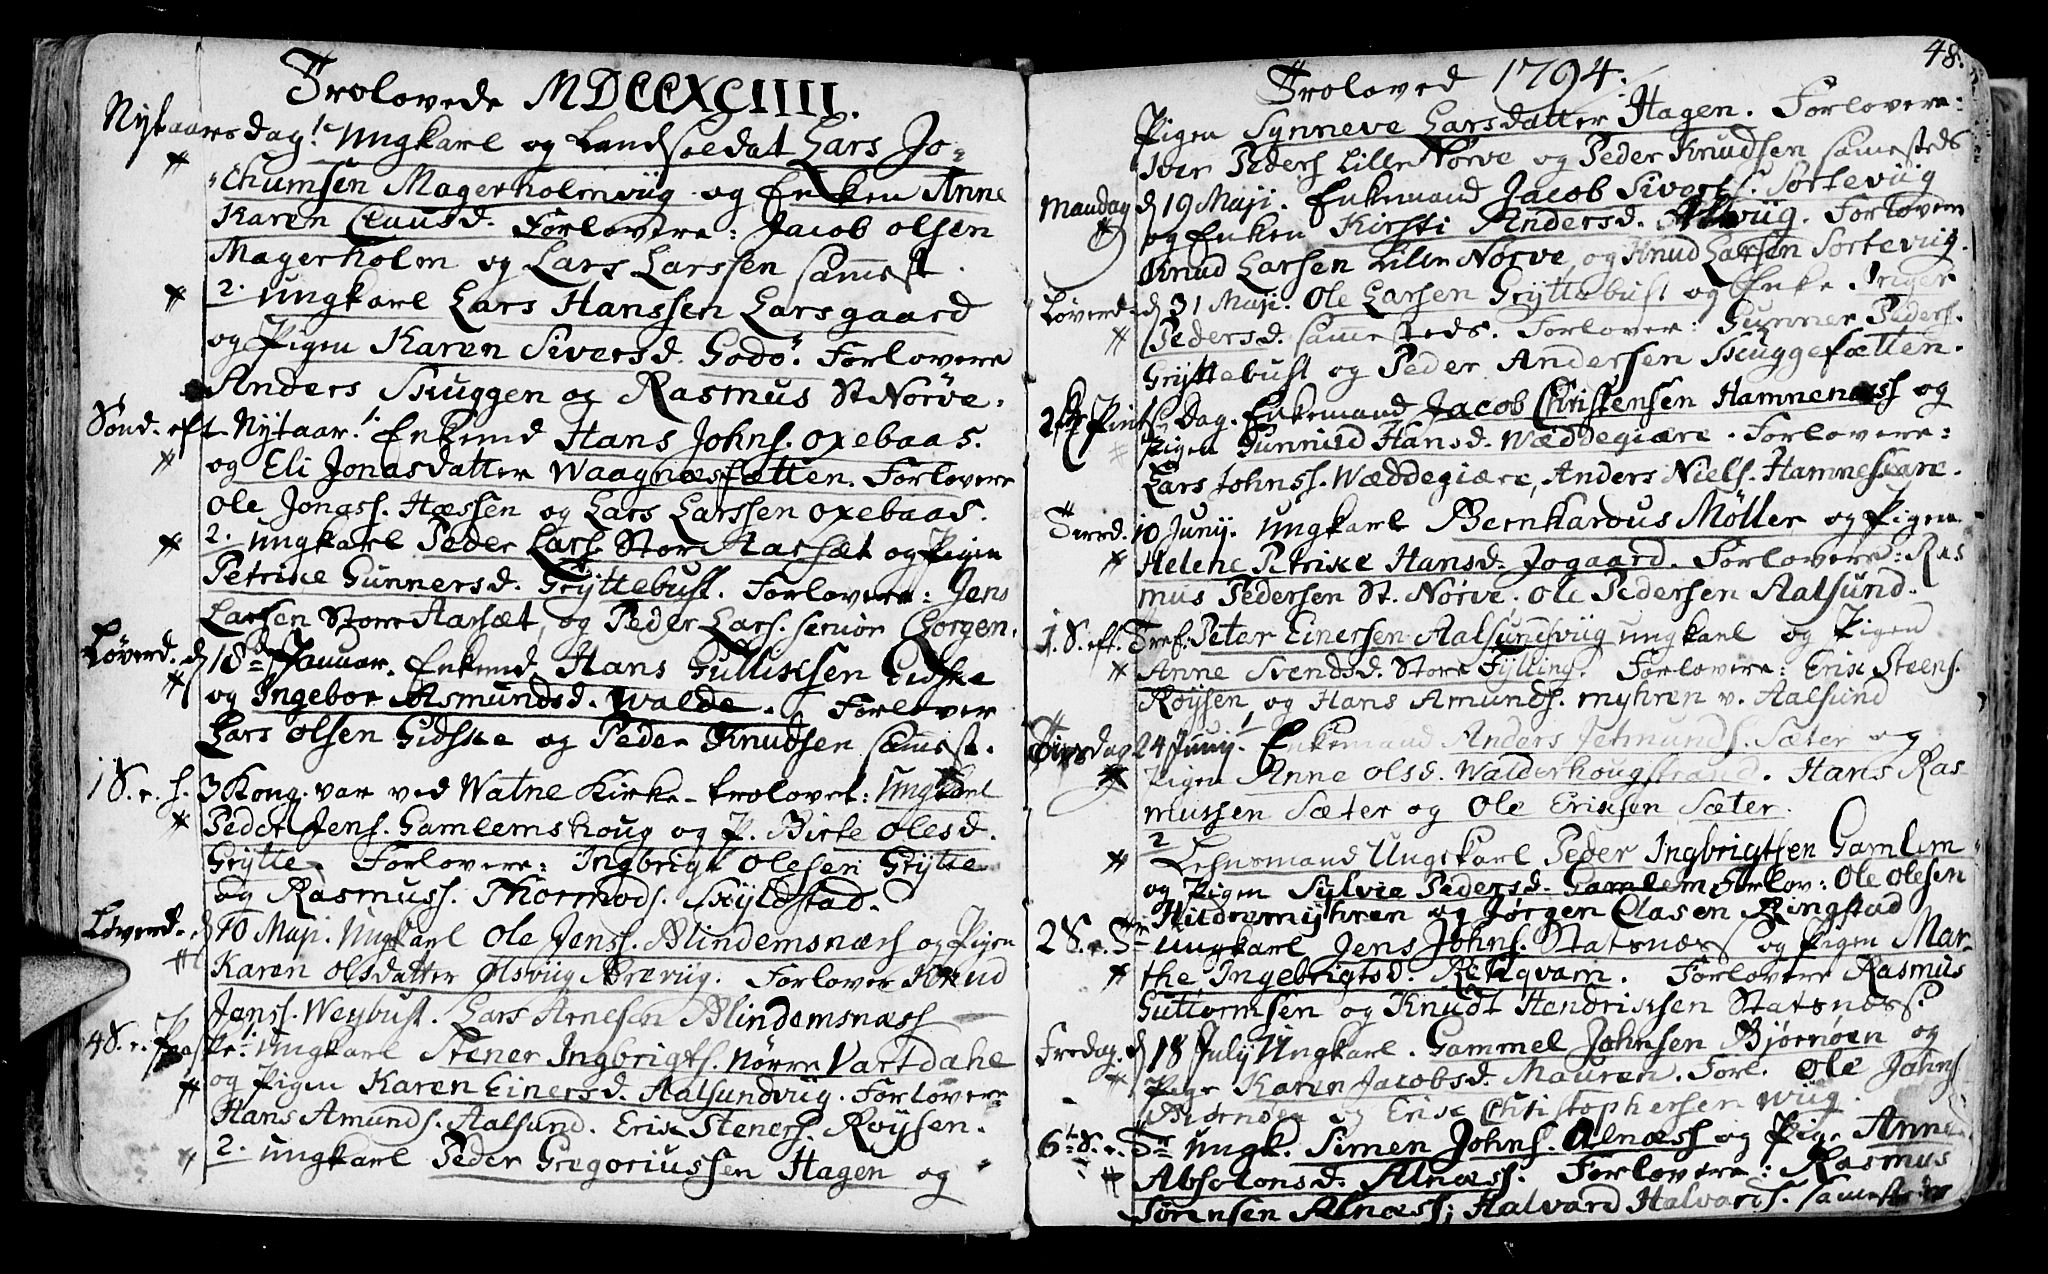 Trolovede MDCCXCIIII.
Nytaarsdag 1. Ungkarl og Landsoldat Lars Jo-
chumsen Magerholmviig og Enken Anne
Karen Clausd. Forlovere: Jacob Olsen
Magerholm og Lars Larssen samest.
2. Ungkarl Lars Hanssen Larsgaard
og Pigen Karen Siversd. Godö. Forlovere
Anders Skuggen og Rasmus St. Nörve.
Sönd. eft. Nytaar. 1. Enkemd Hans Johns. Oxebaas.
og Eli Jonasdatter Waagnæsfætten. Forlovere
Ole Jonass. Hæssen og Lars Larssen Oxebaas.
2. Ungkarl Peder Lars. Store Aarsæt og Pigen
Petrike Gunnersd. Gryttebust. Forlovere: Jens
Larsen Store Aarsæt og Peder Lars. senior Chorgen.
Löverd. d. 18de Januar. Enkemd Hans Gullikssen Gidske
og Ingebor Asmundsd. Walde. Forlover
Lars Olsen Gidske og Peder Knudsen samest.
1 S. e. h. 3 Kong. var ved Watne Kirke trolovet: Ungkarl
Peder Jens. Gamlemshoug og P. Birte Olesd.
Grytte. Forlovere: Ingbrigt Olesen Grytte
og Rasmuss. Thormods. Skyldstad.
Löverd. d. 10 Maji. Ungkarl Ole Jenss. Blindemsnæs og Pigen
Karen Olsdatter Olsviig Brevig. Forlover Knud
Janss. Weybust. Lars Arnesen Blindemsnæss
4 S. e. Paaske: Ungkarl Stener Ingbrigts. Nörre Vartdahl
og Pigen Karen Einersd. Aalsundviig. Forlovere
Hans Amunds. Aalsund. Erik Steners. Röysen.
2. Ungkarl Peder Gregoriussen Hagen og
48.
Troloved 1794.
Pigen Synneve Larsdatter Hagen. Forlovere:
Iver Peders Lille Nörve og Peder Knudsen samesteds
Mandag d. 19 Maji. Enkemand Jacob Sivers. Sorteviig
og Enken Kirsti Andersd. Forlovere
Knud Larsen Lille Nörve og Knud Larsen Sortevig.
Löverd. d. 31 Maji. Ole Larsen Gryttebust og Enke Inger
Pedersd. samesteds. Forlover: Gunner Peders.
Gryttebust og Peder Andersen Skuggefætten.
2den Pints. Dag. Enkemand Jacob Christensen Hamnenæss og
Pigen Gunnild Hansd. Wæddegiære. Forlovere:
Lars Johnss. Wæddegiære, Anders Niels. Hamneskare.
Tirsd. 10 Junij. Ungkarl Bernhardus Möller og Pigen
Helene Petrike Hansd. Jogaard. Forlovere: Ras
mus Pedersen St. Nörve. Ole Pedersen Aalsund.
1. S. eft. Tref. Peter Einersen Aalsundsviig Ungkarl og Pigen
Anne Svendsd. Store Fylling. Forlovere: Erik Steens.
Röysen og Hans Amunds. Myhren v. Aalsund
Tirsdag 24 Junij. 1 Enkemand Anders Jetmunds. Sæter og
Pigen Anne Olsd. Walderhougstrand. Hans Ras-
mussen Sæter og Ole Eriksen Sæter.
2 Lehnsmand Ungkarl Peder Ingbrigtsen Gamlem
og Pigen Sylvie Pedersd. Gamlem Forlov: Ole Olesen
Hildremyhren og Jörgen Olasen Ringstad
2 S. e. Tr. Ungkarl Jens Johns. Statsnæs og Pigen Mar-
the Ingebrigtsd. Rekqvam. Forlovere Rasmus
Guttormsen og Knudt Hendrikssen Statsnæss.
Fredag d. 18 Julij Ungkarl. Gammel Johnsen Bjørnøen og
Pige Karen Jacobsd. Mauren. Forl. Ole Johns
Biørnøen og Erik Christophersen Wiig.
6te S. e. Tr. Ungk. Simen Johns. Alnæss og Pige Anne
Absolonsd. Alnæss. Forlovere: Rasmus
Sörensen Alnæss; Halvard Halvards. samesteder